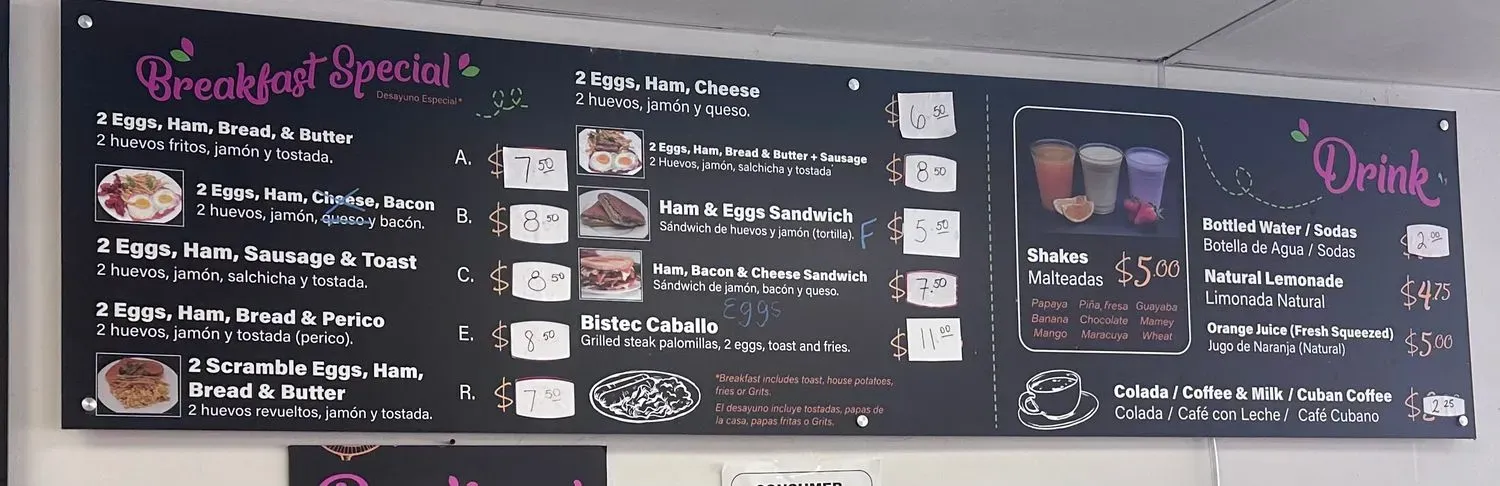 Breakfast Special
Desayuno Especial*
2 Eggs, Ham, Bread, & Butter
2 huevos fritos, jamón y tostada.
A. $7.50
2 Eggs, Ham, Cheese, Bacon
2 huevos, jamón, queso y bacón.
B. $8.50
2 Eggs, Ham, Sausage & Toast
2 huevos, jamón, salchicha y tostada.
C. $8.50
2 Eggs, Ham, Bread & Perico
2 huevos, jamón y tostada (perico).
E. $8.50
2 Scramble Eggs, Ham,
Bread & Butter
2 huevos revueltos, jamón y tostada.
R. $7.50
2 Eggs, Ham, Cheese
2 huevos, jamón y queso.
$6.50
2 Eggs, Ham, Bread & Butter + Sausage
2 Huevos, jamón, salchicha y tostada
$8.50
Ham & Eggs Sandwich
Sándwich de huevos y jamón (tortilla). F
$5.50
Ham, Bacon & Cheese Sandwich
Sándwich de jamón, bacón y queso.
Eggs
$7.50
Bistec Caballo
Grilled steak palomillas, 2 eggs, toast and fries.
$11.00
*Breakfast includes toast, house potatoes,
fries or Grits.
El desayuno incluye tostadas, papas de
la casa, papas fritas o Grits.
Shakes
Malteadas
$5.00
Papaya Piña, fresa Guayaba
Banana Chocolate Mamey
Mango Maracuya Wheat
Drink
Bottled Water / Sodas
Botella de Agua / Sodas
$2.00
Natural Lemonade
Limonada Natural
$4.75
Orange Juice (Fresh Squeezed)
Jugo de Naranja (Natural)
$5.00
Colada / Coffee & Milk / Cuban Coffee
Colada / Café con Leche / Café Cubano
$2.25
CONSUMER